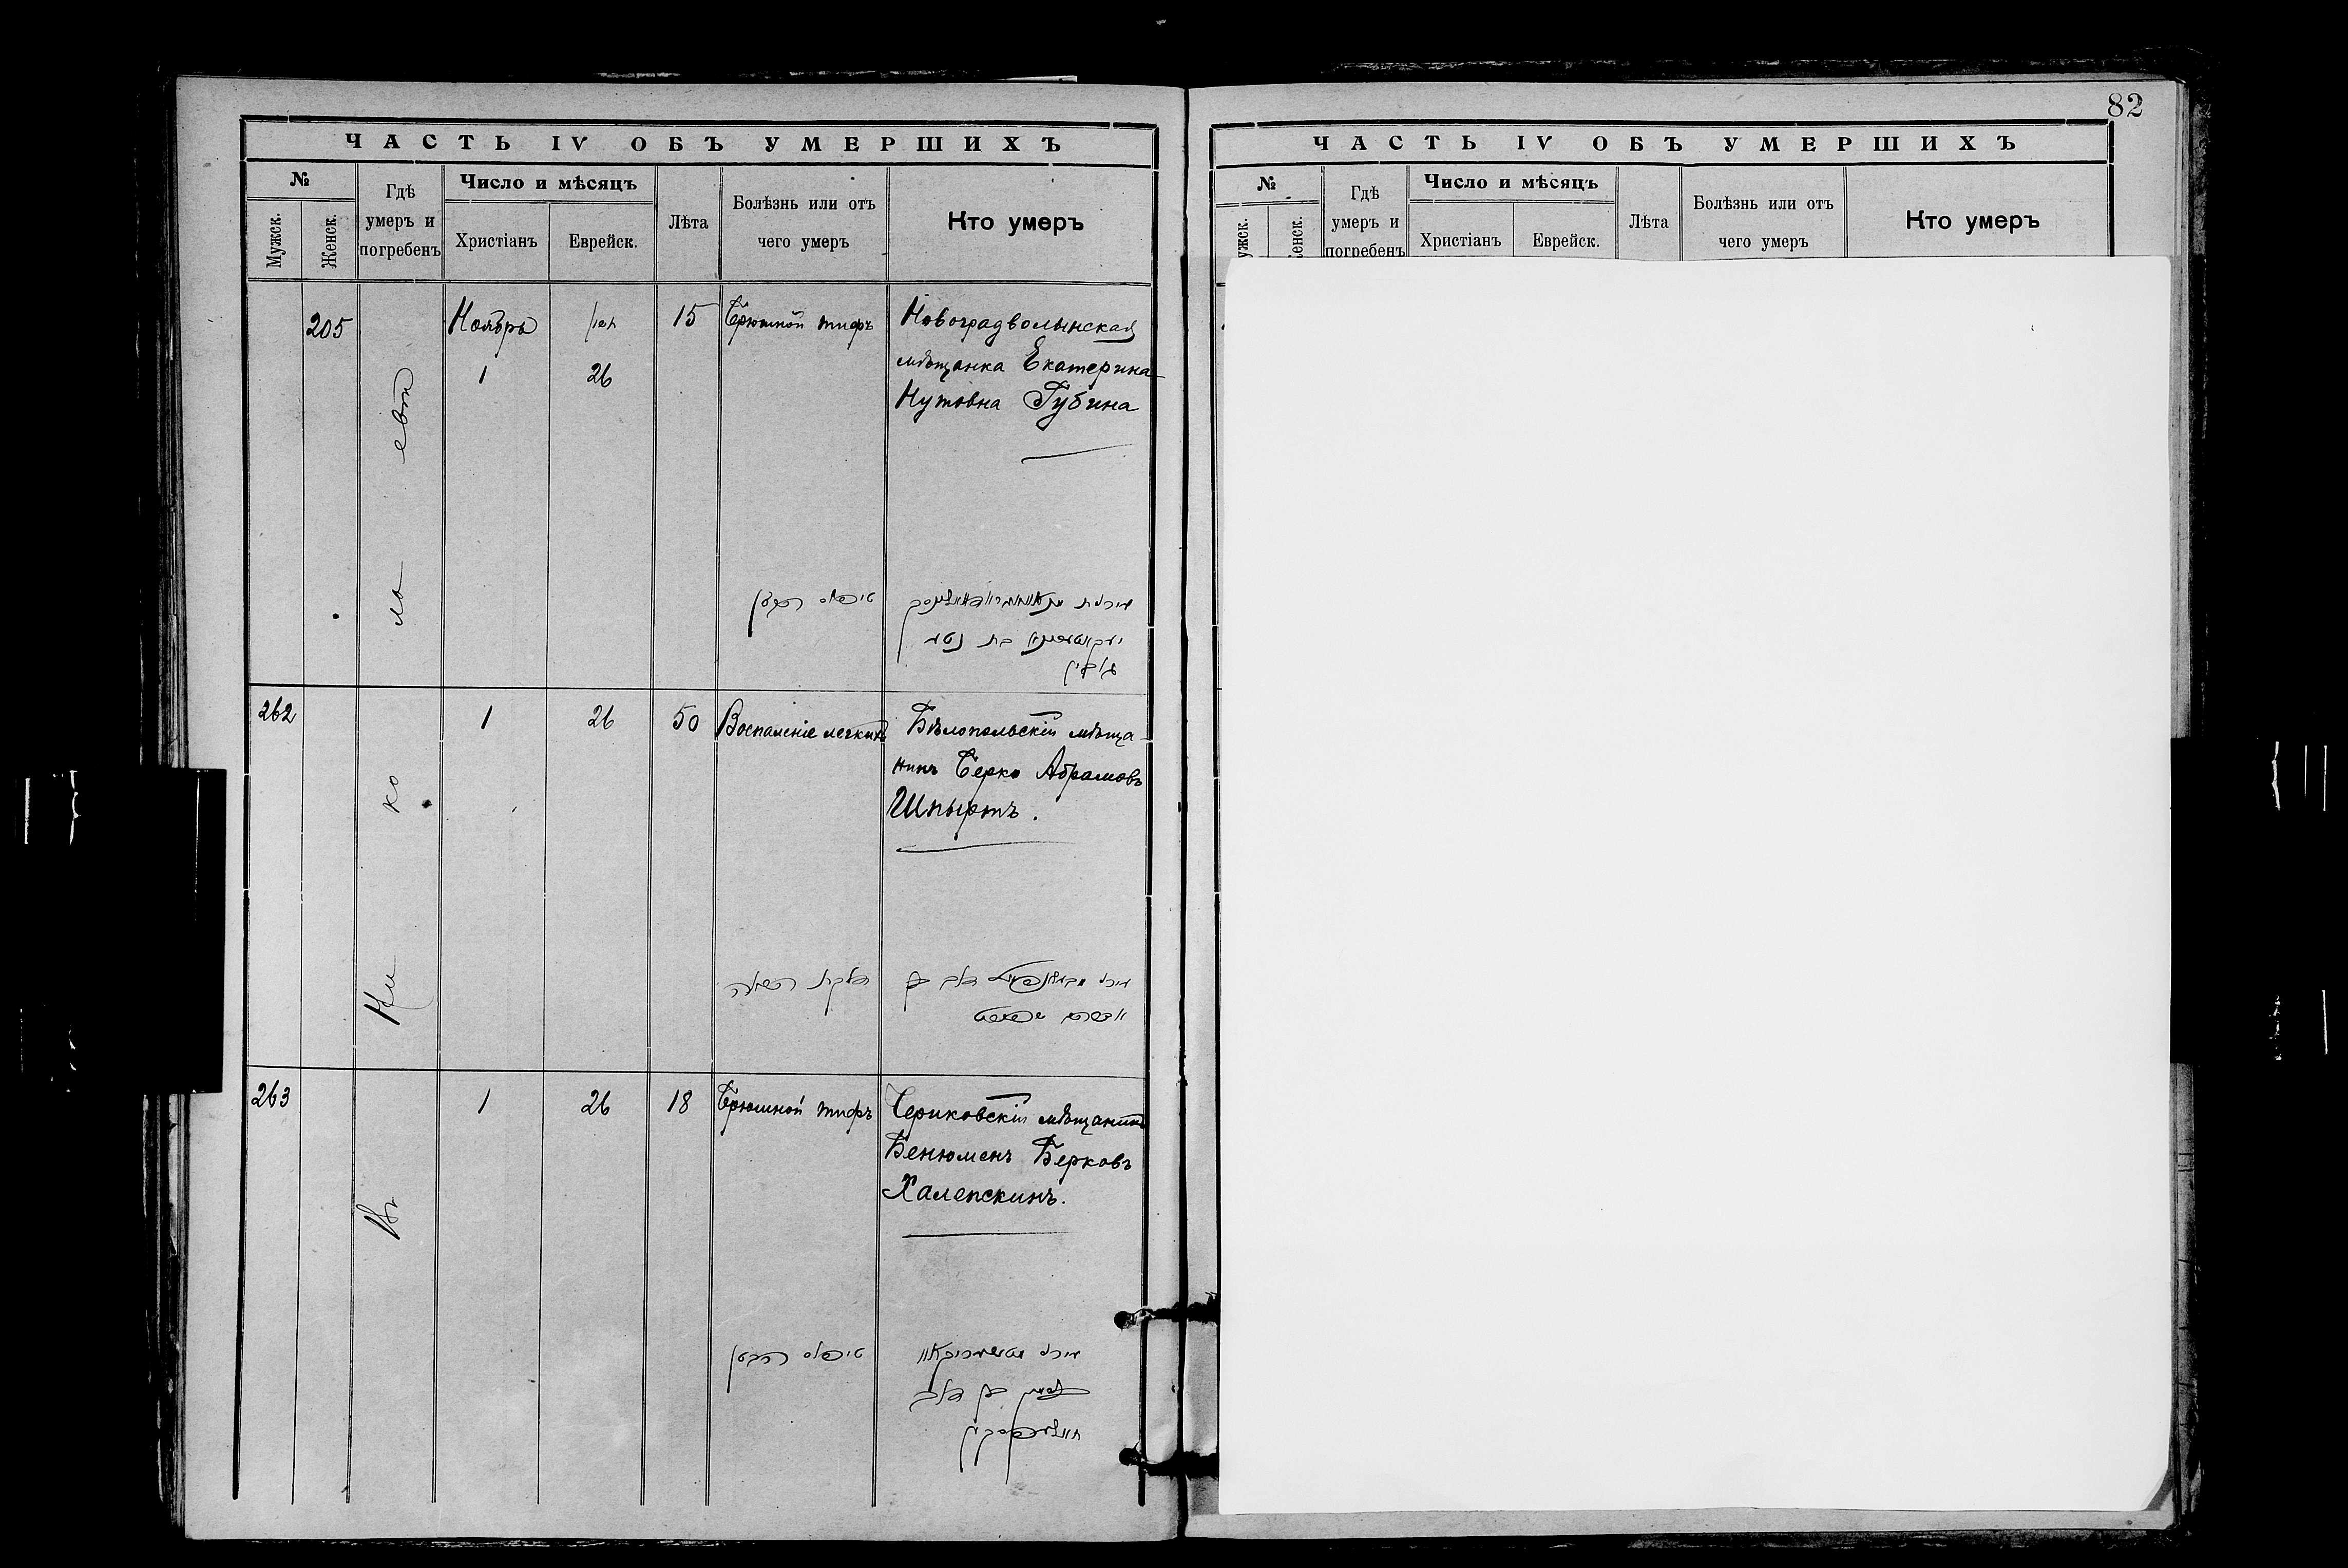 82
ЧАСТЬ IV ОБЪ УМЕРШИХЪ
№
Мужск.
Женск.
Гдѣ
умеръ и
погребенъ
Число и мѣсяцъ
Христіанъ
Еврейск.
Лѣта
Болѣзнь или отъ
чего умеръ
Кто умеръ
Въ Николаевѣ
205
Ноябрь
1
26
15
Брюшной тифъ
Новоградволынская
мѣщанка Екатерина
Нутовна Губина
טיפוס הבטן
בת נטע
262
1
26
50
Воспаленіе легкихъ
Бѣлопольскій мѣща-
нинъ Берко Абрамовъ
Шпыртъ.
דלקת הריאה
263
1
26
18
Брюшной тифъ
Чериковскій мѣщанинъ
Бенюменъ Берковъ
Халепскинъ.
טיפוס הבטן
ЧАСТЬ IV ОБЪ УМЕРШИХЪ
№
ужск.
енск.
Гдѣ
умеръ и
погребенъ
Число и мѣсяцъ
Христіанъ
Еврейск.
Лѣта
Болѣзнь или отъ
чего умеръ
Кто умеръ